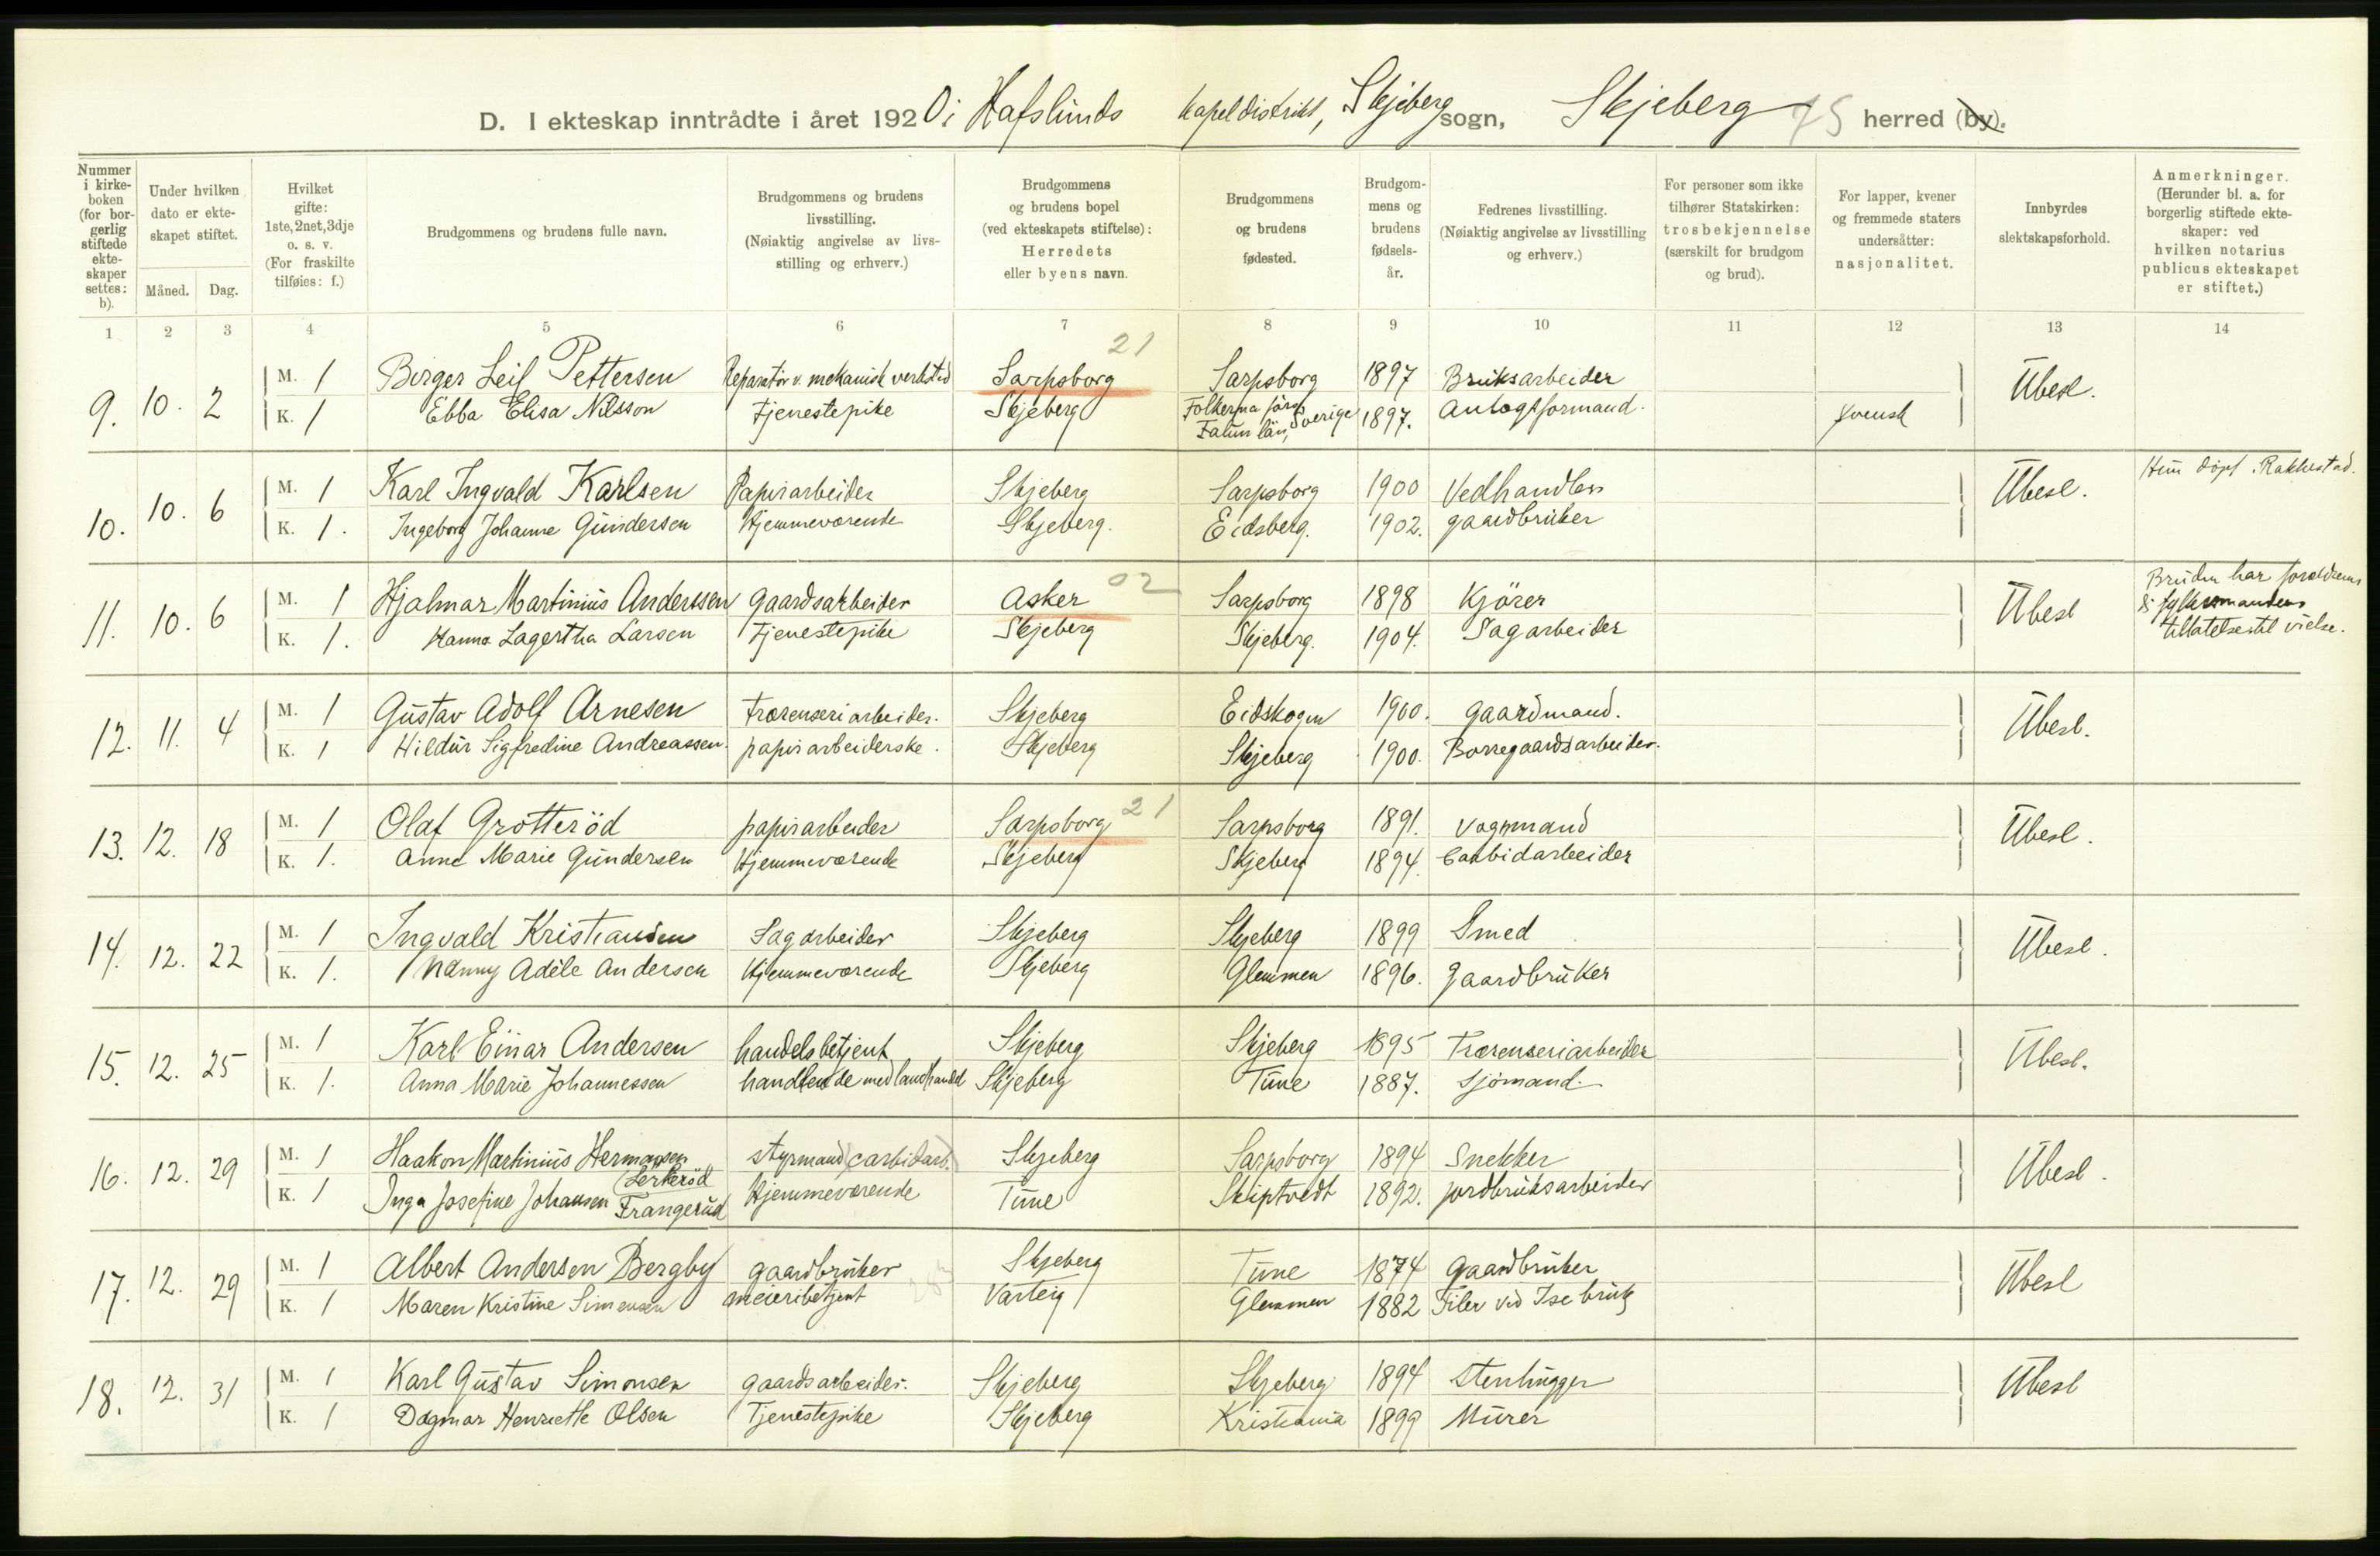 D. I ekteskap inntrådte i året 1920 i Hafslunds kapeldistrikt, Skjeberg sogn, Skjeberg 75 herred (by).
Nummer i kirkeboken (for borgerlig stiftede ekteskaper settes: b).
Under hvilken dato er ekteskapet stiftet.
Måned. Dag.
Hvilket gifte: 1ste, 2net, 3dje o. s. v. (For fraskilte tilføies: f.)
Brudgommens og brudens fulle navn.
Brudgommens og brudens livsstilling. (Nøiaktig angivelse av livsstilling og erhverv.)
Brudgommens og brudens bopel (ved ekteskapets stiftelse): Herredets eller byens navn.
Brudgommens og brudens fødested.
Brudgommens og brudens fødselsår.
Fedrenes livsstilling. (Nøiaktig angivelse av livsstilling og erhverv.)
For personer som ikke tilhører Statskirken: trosbekjennelse (særskilt for brudgom og brud).
For lapper, kvener og fremmede staters undersåtter: nasjonalitet.
Innbyrdes slektskapsforhold.
Anmerkninger. (Herunder bl. a. for borgerlig stiftede ekteskaper: ved hvilken notarius publicus ekteskapet er stiftet.)
1 2 3 4 5 6 7 8 9 10 11 12 13 14
21
9. 10. 2 M. 1 Birger Leif Pettersen Reparatør v. mekanisk verksted Sarpsborg Sarpsborg 1897 Bruksarbeider Ubesl.
K. 1 Ebba Elisa Nilsson Tjenestepike Skjeberg Folkerna Sverige Falun län, 1897. Anlægsformand. svensk
10. 10. 6 M. 1 Karl Ingvald Karlsen Papirarbeider Skjeberg Sarpsborg 1900 Vedhandler Ubesl. Hun döpt i Rakkestad.
K. 1. Ingeborg Johanne Gundersen Hjemmeværende Skjeberg. Eidsberg. 1902. gaardbruker
11. 10. 6 M. 1 Hjalmar Martinius Anderssen gaardsarbeider Asker 02 Sarpsborg 1898 Kjörer Ubesl Bruden har forældrenes & fylkesmandens tillatelse til vielse.
K. 1. Hanna Lagertha Larsen Tjenestepike Skjeberg Skjeberg. 1904. Sagarbeider
12. 11. 4 M. 1 Gustav Adolf Arnesen Træsenseriarbeider. Skjeberg Eidskogen 1900. gaardmand. Ubesl.
K. 1 Hildur Sigfredine Andreassen. papirarbeiderske. Skjeberg Skjeberg 1900. Borregaardsarbeider.
13. 12. 18 M. 1 Olaf Grotteröd papirarbeider Sarpsborg 21 Sarpsborg 1891. Vognmand Ubesl.
K. 1. Anne Marie Gundersen Hjemmeværende Skjeberg Skjeberg 1894. Carbidarbeider
14. 12. 22 M. 1 Ingvald Kristiansen Sagarbeider Skjeberg Skjeberg 1899 Smed Ubesl.
K. 1. Nanny Adèle Andersen Hjemmeværende Skjeberg Glemmen 1896. gaardbruker
15. 12. 25 M. 1 Karl Einar Andersen handelsbetjent Skjeberg Skjeberg 1895 Træsenseriarbeider Ubesl.
K. 1. Anna Marie Johannessen handlende med landhandel Skjeberg Tune 1887. sjömand.
16. 12. 29 M. 1 Haakon Martinius Hermansen Lerkeröd styrmand (carbidarb.) Skjeberg Sarpsborg 1894 Snekker Ubesl.
K. 1 Inga Josefine Johansen Frangerud Hjemmeværende Tune Skiptvedt 1892. jordbruksarbeider
17. 12. 29 M. 1 Albert Andersen Bergby gaardbruker Skjeberg Tune 1874 Gaardbruker Ubesl
K. 1 Maren Kristine Simensen meieribetjent Varteig Glemmen 1882 Filer ved Ise bruk
18. 12. 31 M. 1 Karl Gustav Simonsen gaardsarbeider. Skjeberg Skjeberg 1894 Stenhugger Ubesl
K. 1 Dagmar Henriette Olsen Tjenestepike Skjeberg Kristiania 1899 Murer